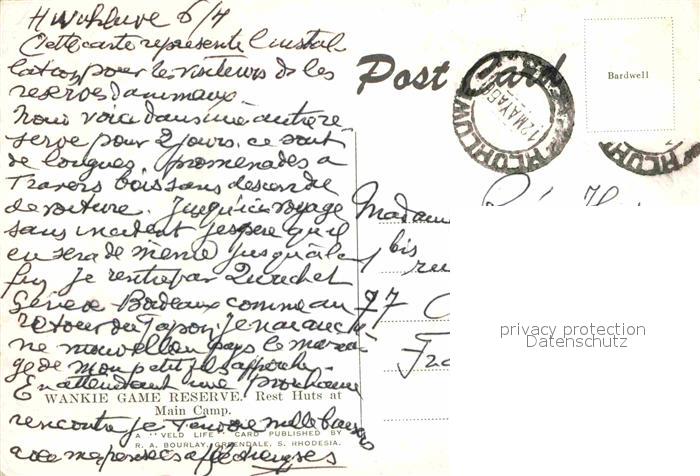 Hwuhluwe 6/7
Cette carte represente l'instal
lation pour les visiteurs de les
reserves d'animaux
Nous voici dans une autre re
serve pour 2 jours. ce sont
de longues promenades a
travers bois sans descendre
de voiture. Jusqu'ici voyage
sans incident j'espere qu'il
en sera de même jusqu'à la
fin je rentre par Zurich et
Genève Bordeaux comme au
retour du Japon. Je n'ai aucu
ne nouvelle du pays le maria
ge de mon petit fils approche
En attendant une prochaine
rencontre je t'envoie mille baisers
avec mes pensées affectueuses
WANKIE GAME RESERVE. Rest Huts at
Main Camp.
A "VELD LIFE" CARD PUBLISHED BY
R. A. BOURLAY, GREENDALE, S. RHODESIA.
Post Card
12 MAY
Bardwell
Madam
bis
ru
77
Fra
privacy protection
Datenschutz